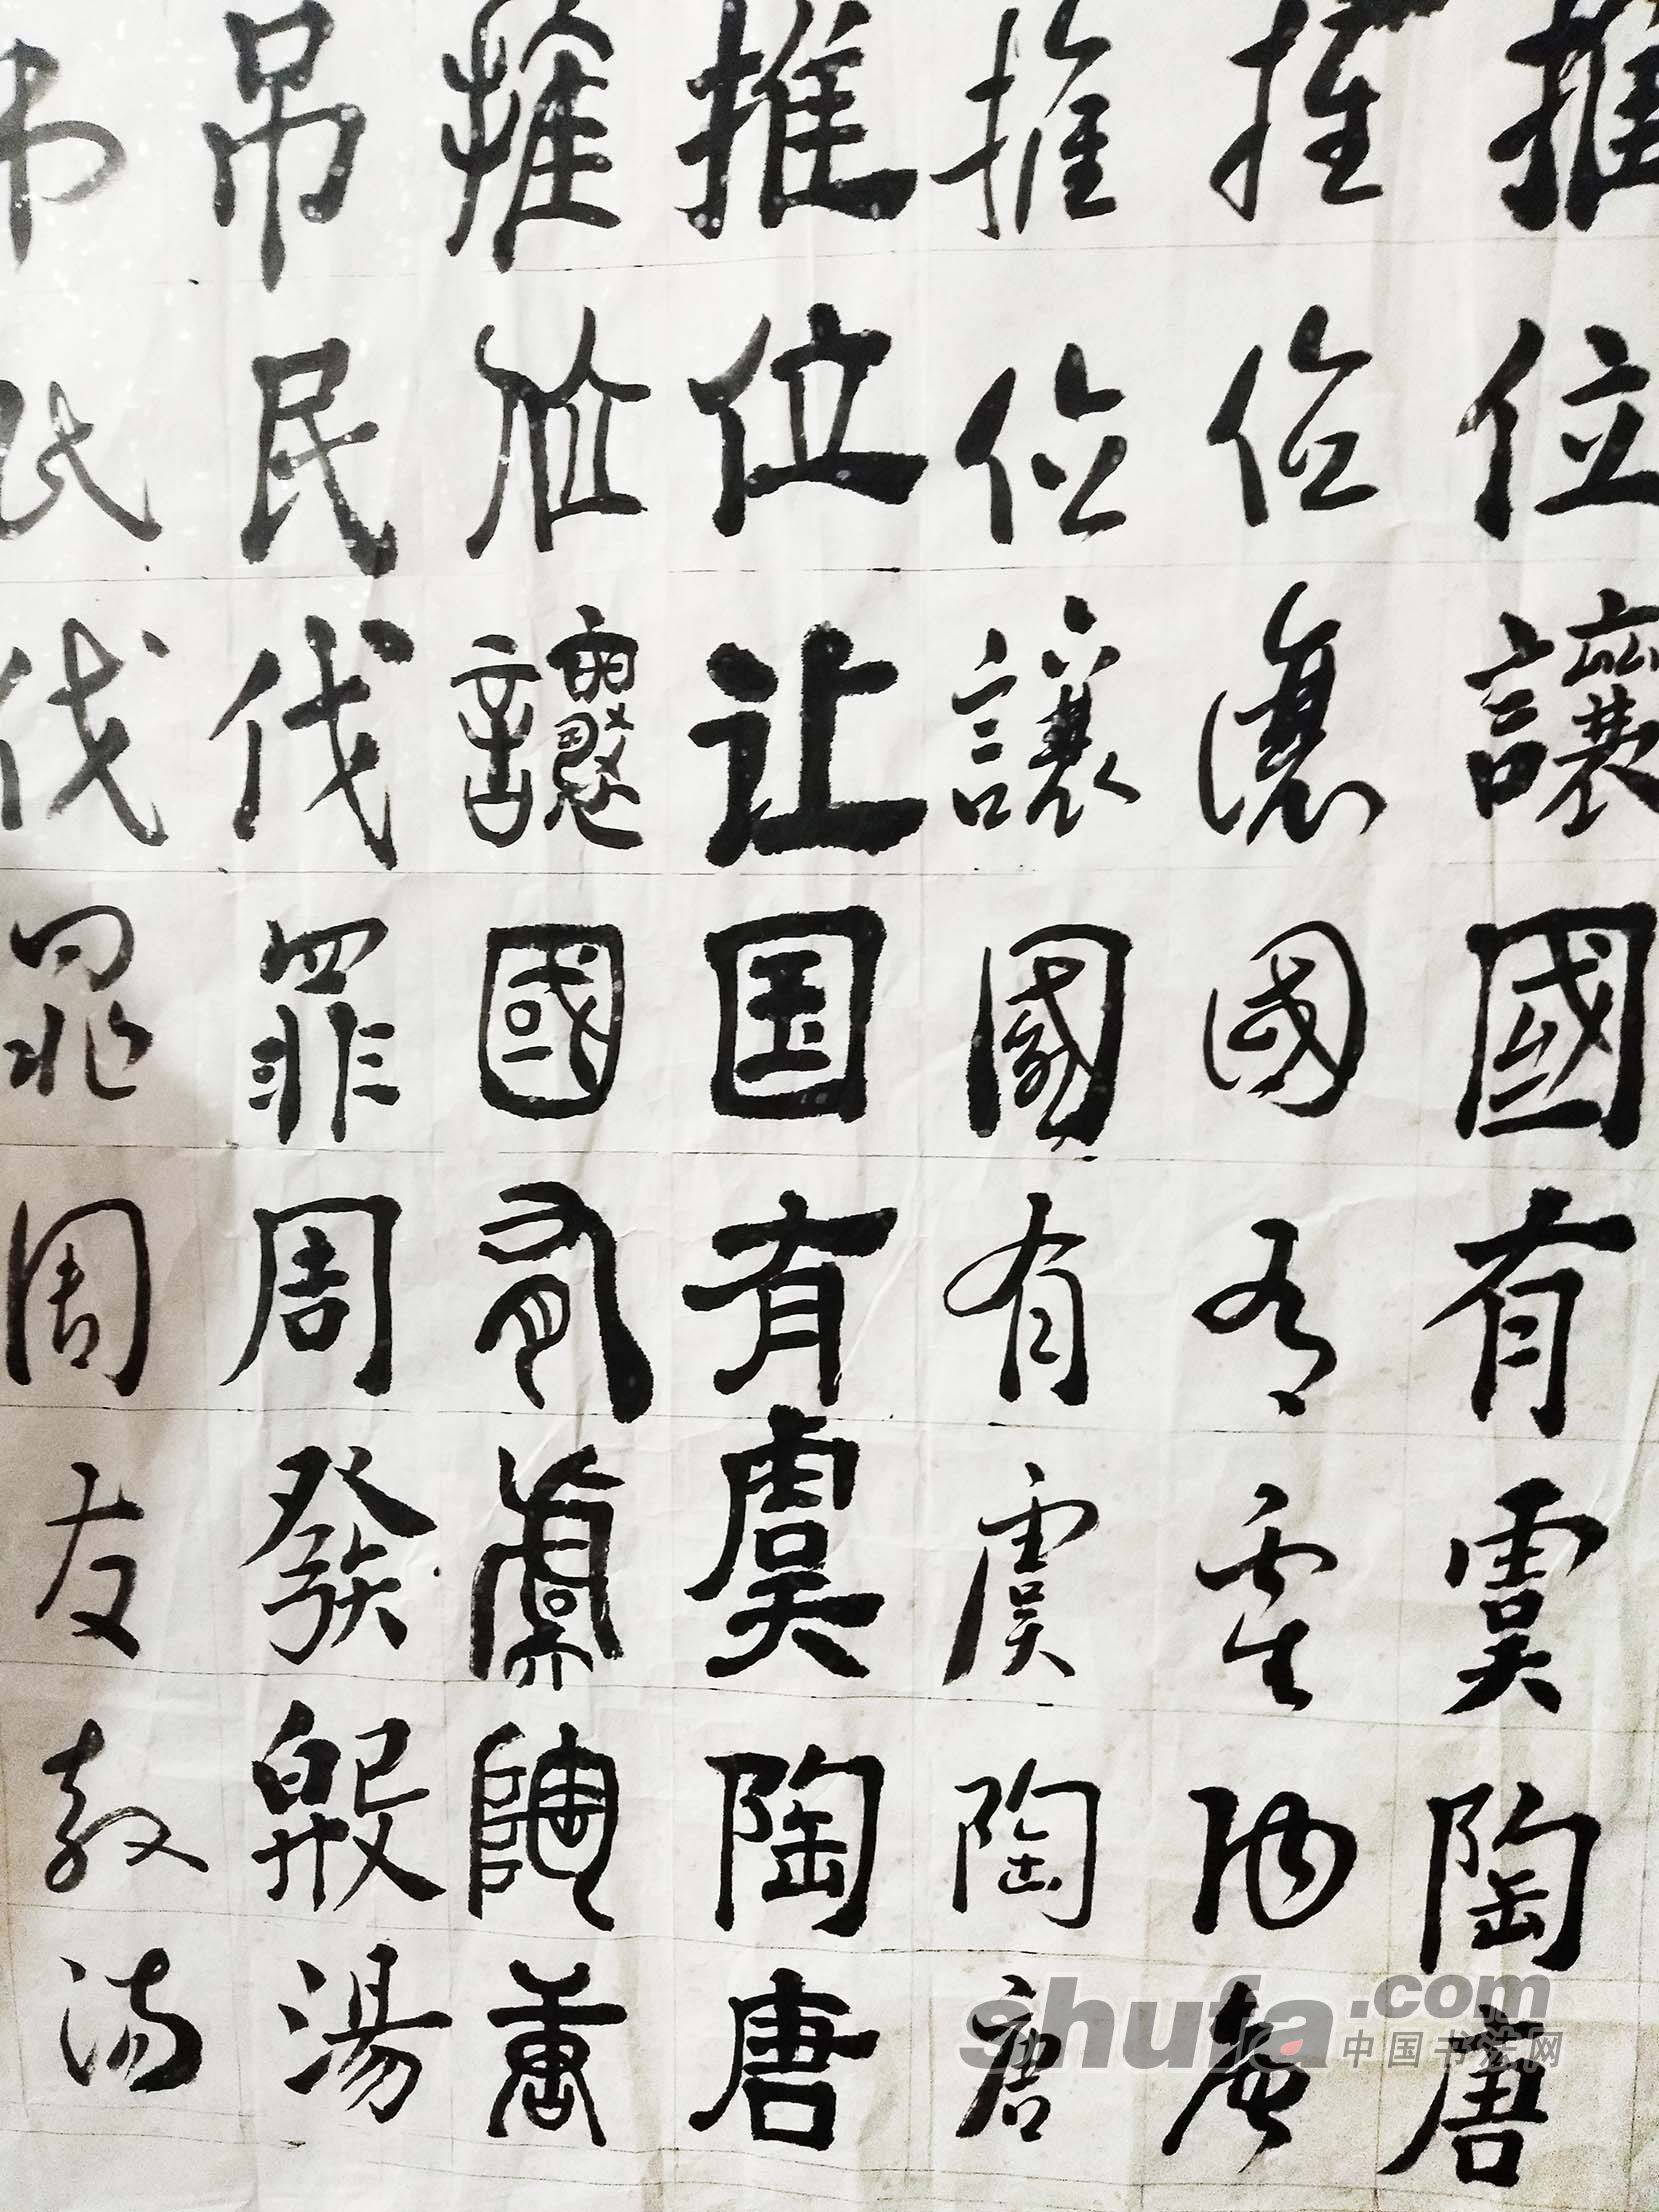 推位讓國有虞陶唐
推位讓國有虞陶唐
推位讓國有虞陶唐
推位让国有虞陶唐
推位讓國有虞陶唐
吊民伐罪周發殷湯
吊民伐罪周发殷湯
shufa.com
中国书法网